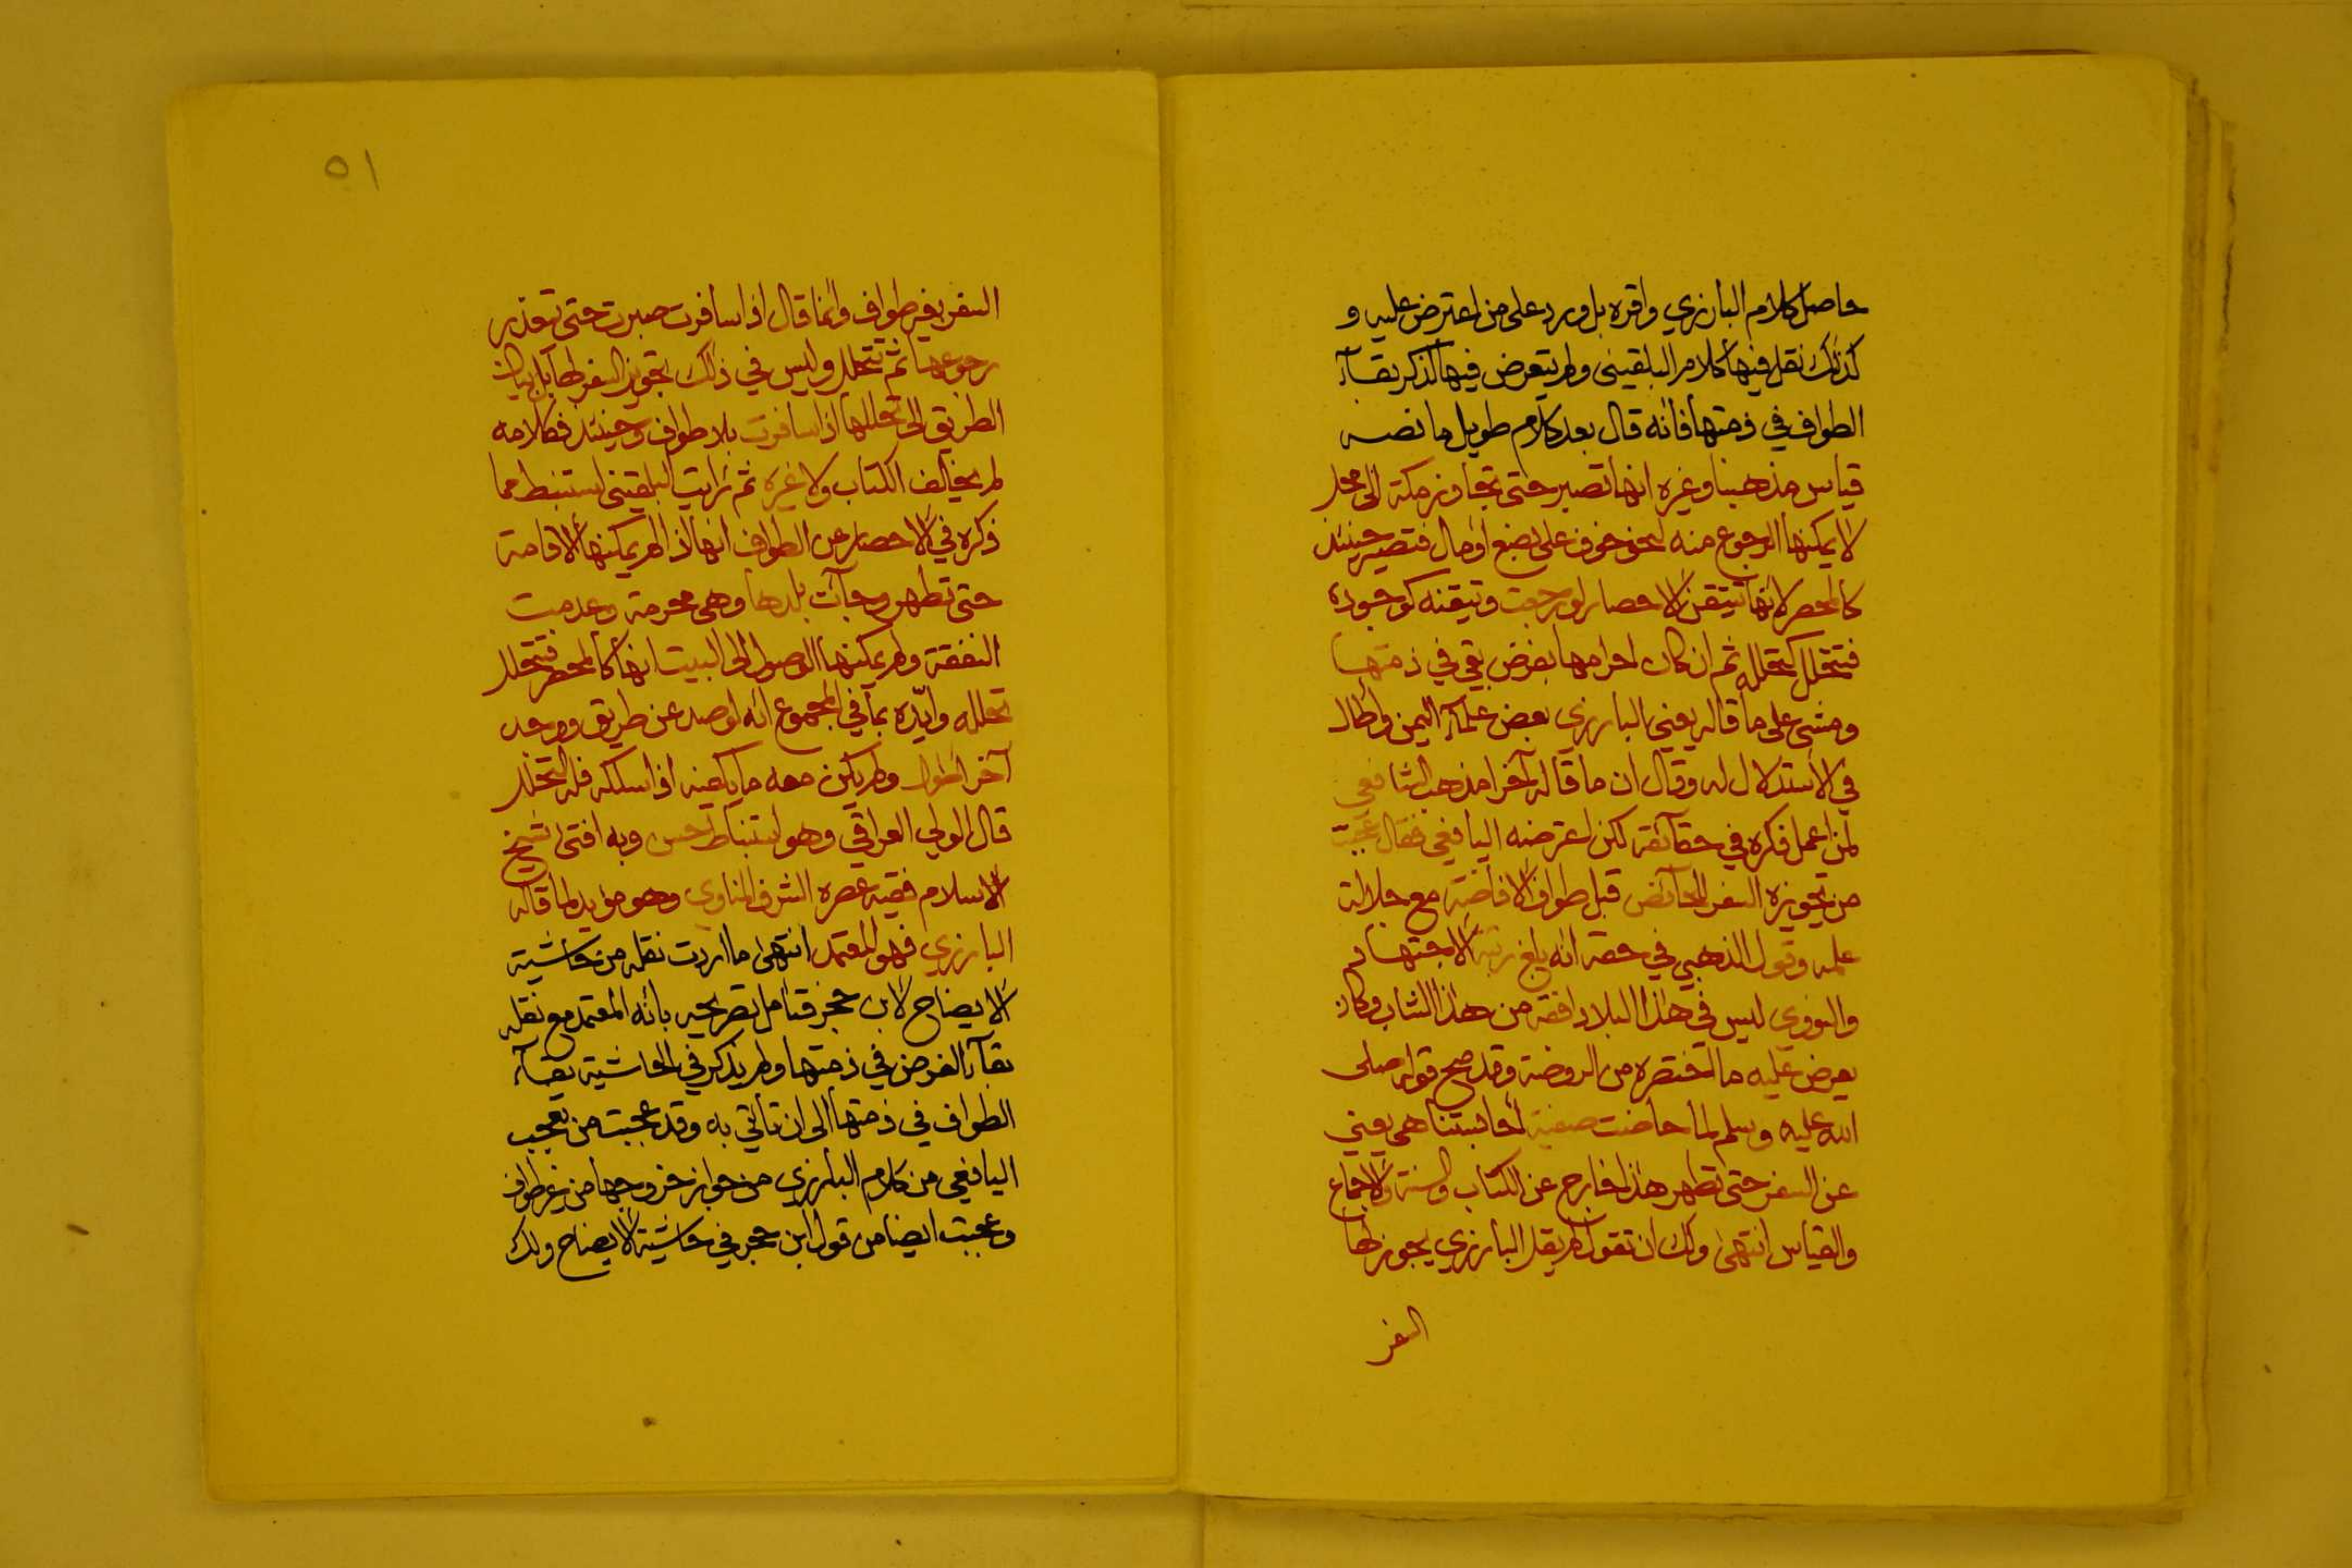 حاصل كلام البارزي واقره بل ورد على من اعترض عليه و
كذلك نقل فيها كلام البلقيني ولم يتعرض فيها لذكر بقآء
الطواف في ذمتها فانه قال بعد كلام طويل ما نصه
قياس مذهبنا وغيره انها تصبر حتى تجاوز مكة الى محل
لا يمكنها الرجوع منه لنحو خوف على بضع او مال فتصير حينئذ
كالمحصر لانها تتيقن الاحصار لو رجعت وتيقنه كوجوده
فتتحلل كتحلله ثم ان كان احرامها بفرض بقي في ذمتها
ومشى على ما قاله يعني البارزي بعض علمآء اليمن واطال
في الاستدلال له وقال ان ما قاله آخرا مذهب الشافعي
لمن اعمل فكره في حقآئقه لكن اعترضه اليافعي فقال عجبت
من تجويزه السفر للحآئض قبل طواف الافاضة مع جلالة
علمه وقول الذهبي في حقه انه بلغ رتبة الاجتهاد
والنووي ليس في هذا البلاد افقه من هذا الشاب وكان
يعرض عليه ما اختصره من الروضة وقد صح قوله صلى
الله عليه وسلم لما حاضت صفية احابستنا هي يعني
عن السفر حتى تطهر هذا خارج عن الكتاب والسنة والاجماع
والقياس انتهى ولك ان تقول لم يقل البارزي يجوز لها
السفر
٥١
السفر بغير طواف وانما قال اذا سافرت صبرت حتى تتعذر
رجوعها ثم تتحلل وليس في ذلك تجويز السفر لها بل بيان
الطريق الى تحللها اذا سافرت بلا طواف وحينئذ فكلامه
لم يخالف الكتاب ولا غيره ثم رايت البلقيني استنبط مما
ذكره في الاحصار عن الطواف انها اذا لم يمكنها الاقامة
حتى تطهر وجآئت بلدها وهي محرمة وعدمت
النفقة ولم يمكنها الوصول الى البيت انها كالمحصر فتتحلل
تحلله وايّده بما في المجموع انه لو صد عن طريق ووجد
آخر اطول ولم يكن معه ما يكفيه اذا سلكه فله التحلل
قال الولي العراقي وهو استنباط حسن وبه افتى شيخ
الاسلام فقيه عصره الشرف المناوي وهو مؤيد لما قاله
البارزي فهو المعتمد انتهى ما اردت نقله من حاشية
الايضاح لابن حجر فتامل تصريحه بانه المعتمد مع نقله
بقآء الفرض في ذمتها ولم يذكر في الحاشية بقآء
الطواف في ذمتها الى ان تأتي به وقد عجبت من تعجب
اليافعي من كلام البارزي من جواز خروجها من غير طواف
وعجبت ايضا من قول ابن حجر في حاشية الايضاح ولك